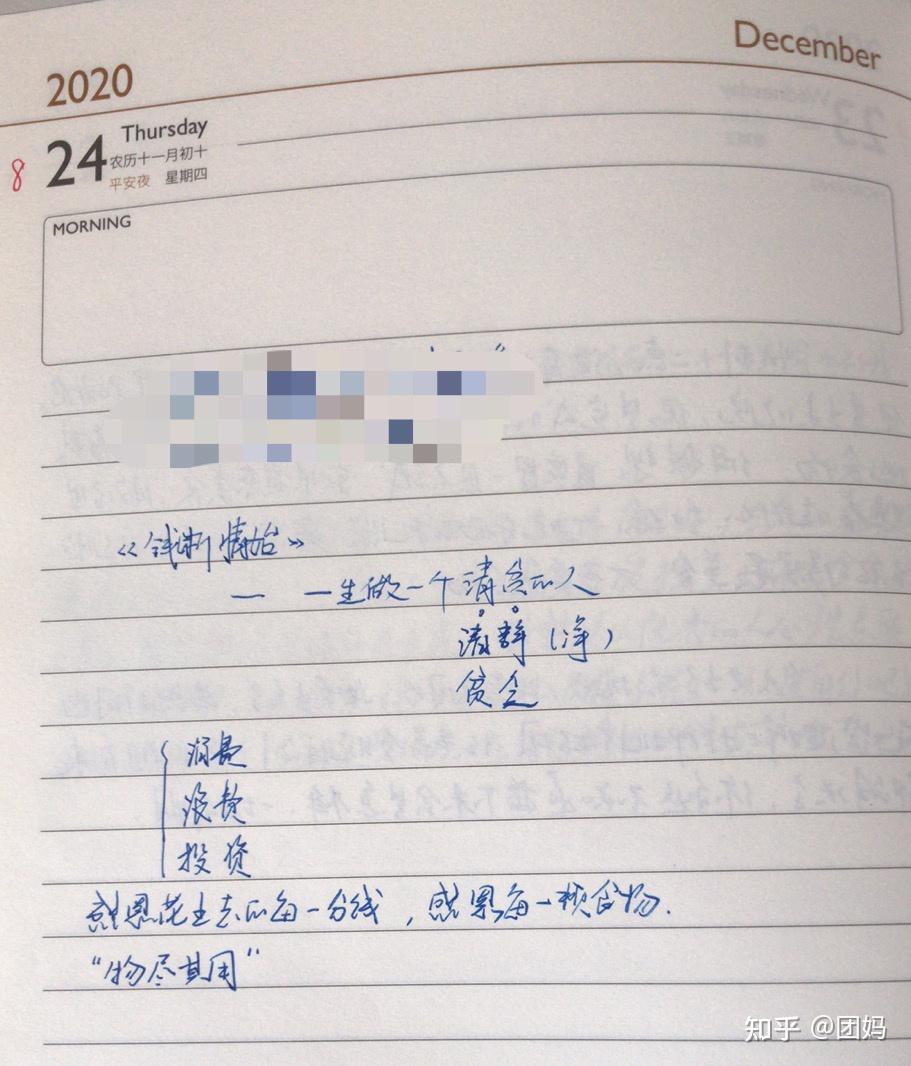 2020
December
8
24
Thursday
农历十一月初十
平安夜 星期四
MORNING
《钱断情始》
— 一生做一个清贫的人
清静(净)
贫
消费
浪费
投资
感恩花出去的每一分钱,感恩每一颗食物.
“物尽其用”
知乎 @团妈